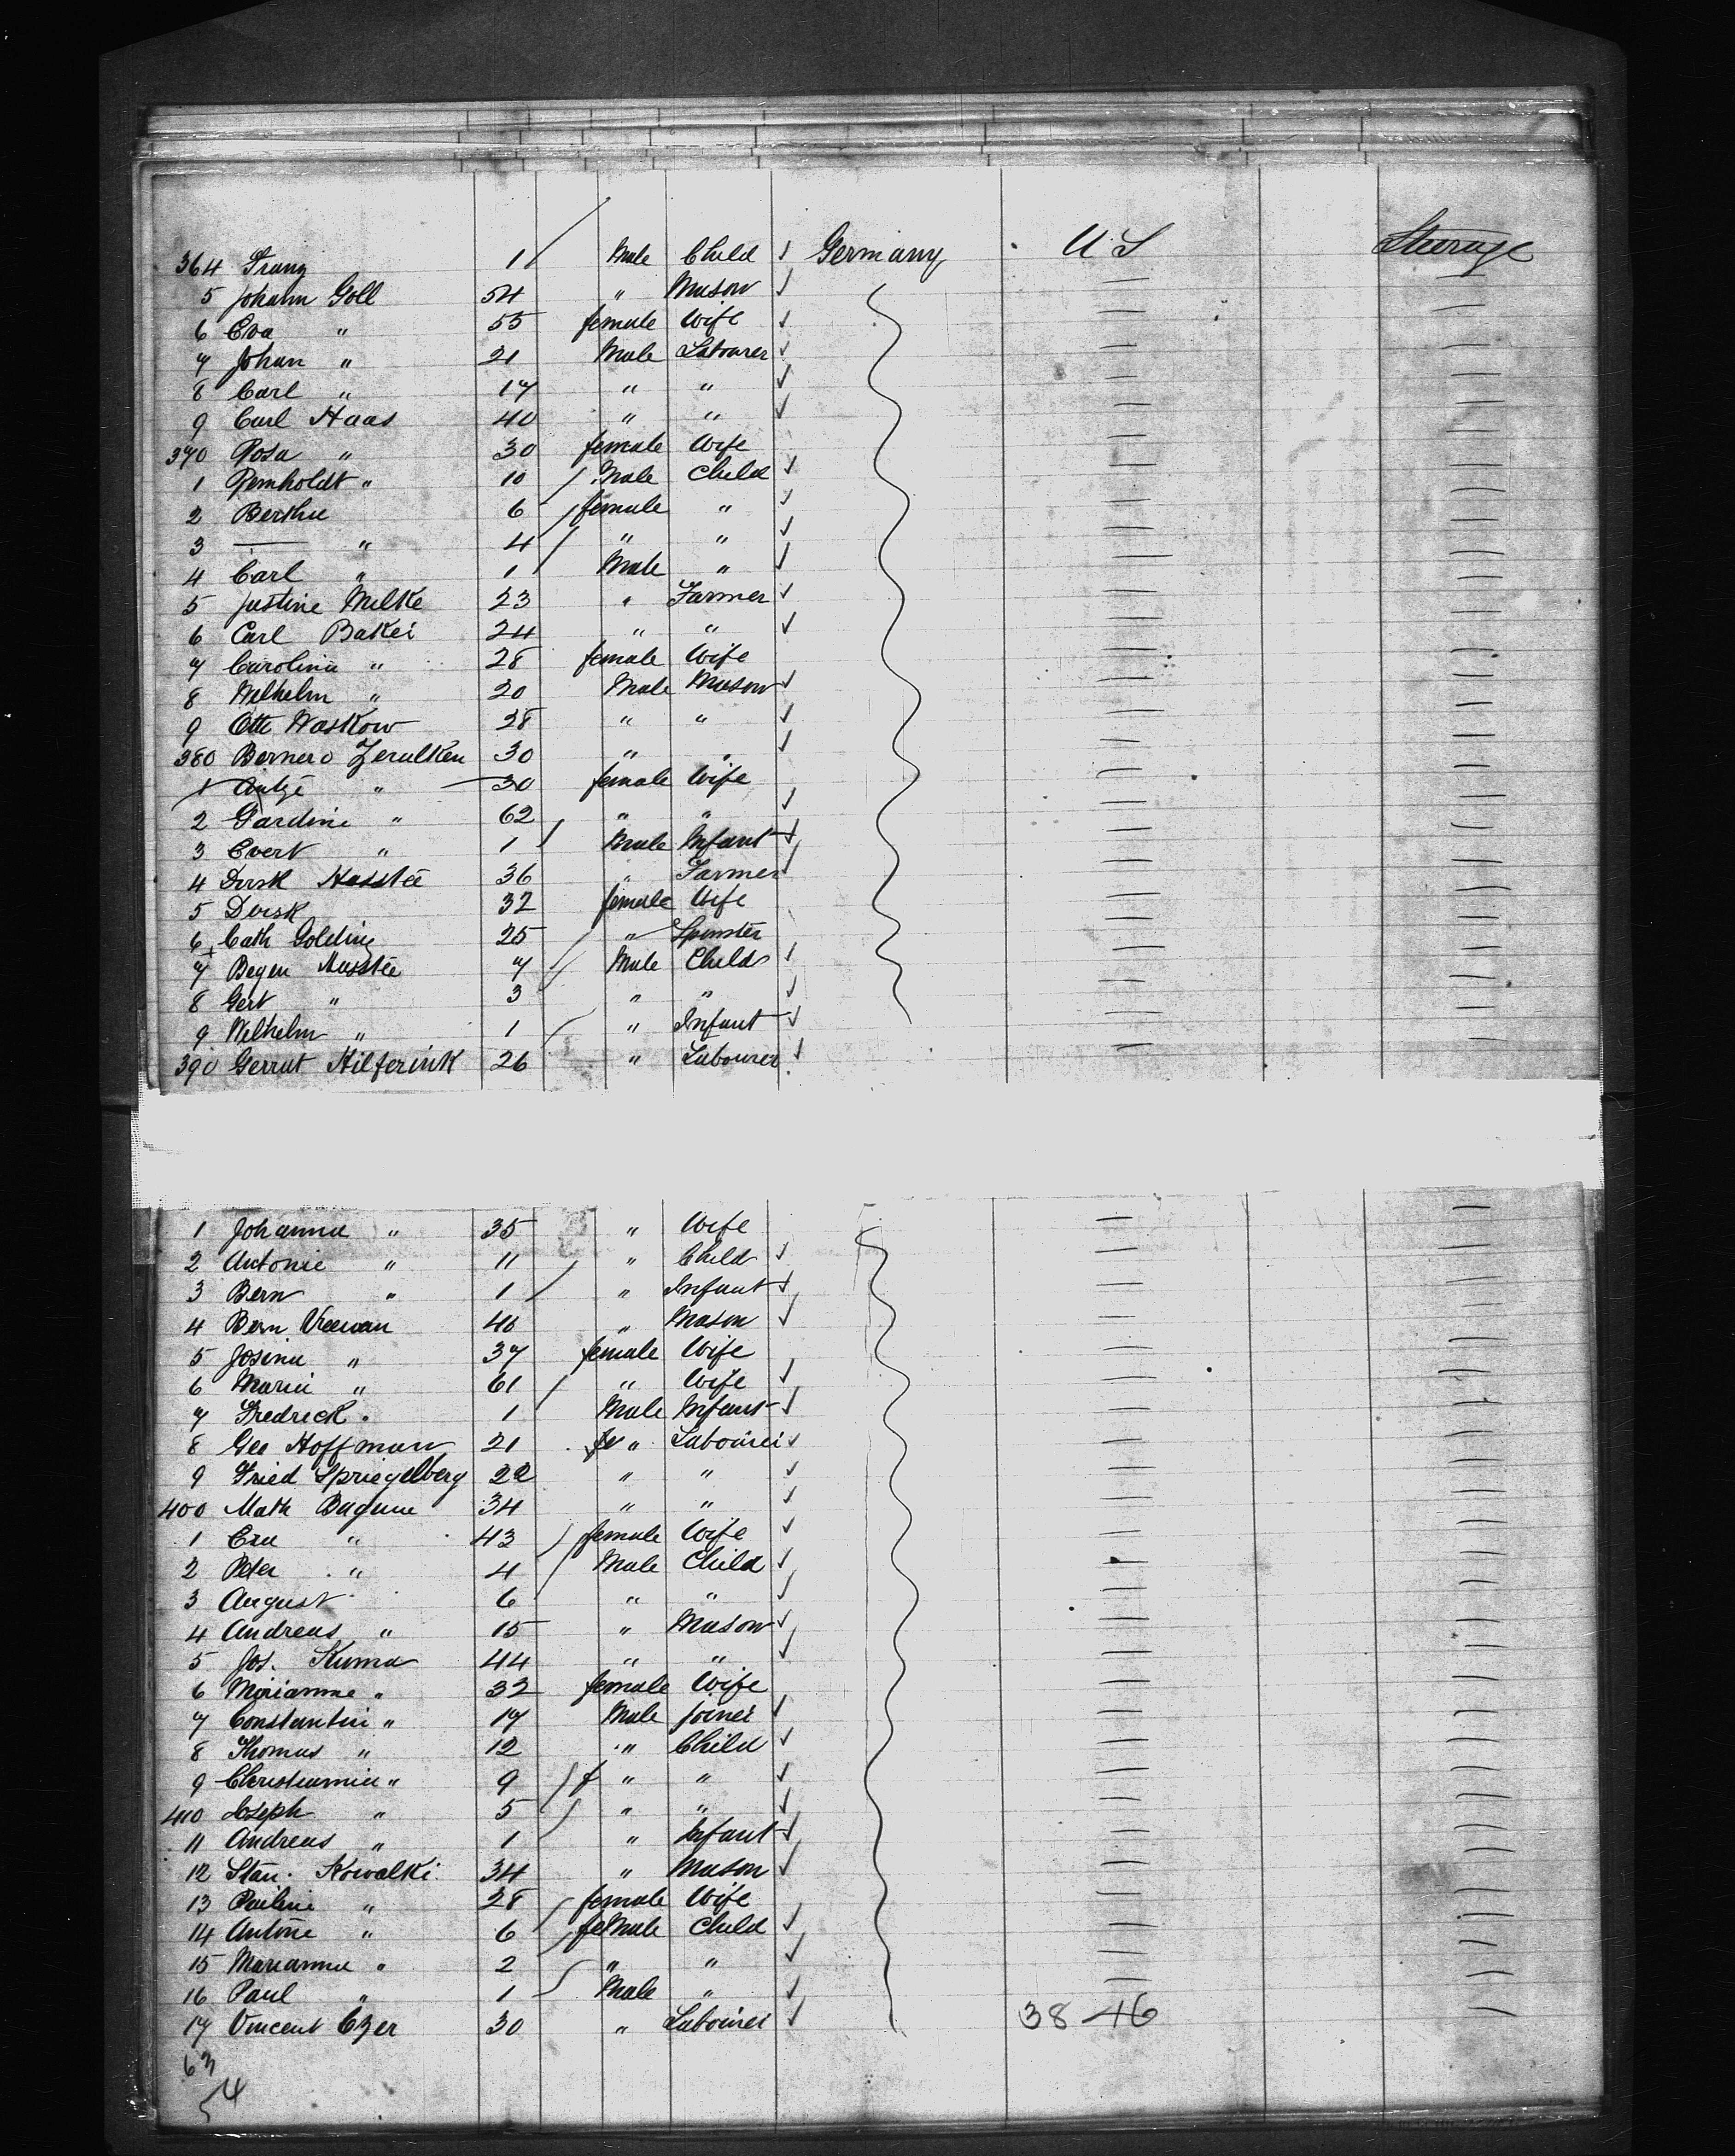 364 Franz 1 Male Child ✓ Germany U S Steerage
5 Johann Goll 54 " Mason ✓ — —
6 Eva " 55 female Wife ✓ — —
7 Johan " 21 Male Labourer ✓ — —
8 Carl " 17 " " ✓ — —
9 Carl Haas 40 " " ✓ — —
370 Rosa " 30 female Wife — —
1 Reinholdt " 10 / Male Child ✓ — —
2 Bertha 6 / female " ✓ — —
3 — " 4 / " " ✓ — —
4 Carl " 1 / Male " ✓ — —
5 Justine Milke 23 " Farmer ✓ — —
6 Carl Bakei 24 " " ✓ — —
7 Carolina " 28 female Wife — —
8 Wilhelm " 20 Male Mason ✓ — —
9 Otto Waskow 28 " " ✓ — —
380 Bernero Zerulken 30 " " ✓ — —
1 Antje " 30 female Wife — —
2 Gardine " 62 " " ✓ — —
3 Evert " 1 / Male Infant ✓ — —
4 Dirk Hasstee 36 " Farmer ✓ — —
5 Dirsk 32 female Wife — —
6 Cath Golding 25 " Spinster — —
7 Beyen Hasstee 7 / Male Child ✓ — —
8 Gert " 3 " " ✓ — —
9 Wilhelm " 1 / " Infant ✓ — —
390 Gerrut Hilferink 26 " Labourer ✓ —
1 Johanna " 35 " Wife — —
2 Antonie " 11 " Child ✓ — —
3 Bern " 1 / " Infant ✓ — —
4 Bern Veewan 40 " Mason ✓ — —
5 Josina " 37 female Wife — —
6 Maria " 61 / " Wife ✓ — —
7 Fredrick " 1 / Male Infant ✓ — —
8 Geo Hoffman 21 fe " Labourer ✓ — —
9 Fried Spriegelberg 22 " " ✓ — —
400 Math 34 " " ✓ — —
1 Eva " 43 / female Wife ✓ — —
2 Peter " 4 / Male Child ✓ — —
3 August 6 " " ✓ — —
4 Andreas " 15 " Mason ✓ — —
5 Jos. Kuma 44 " " ✓ — —
6 Marianne " 32 female Wife — —
7 Constantin " 17 Male Joiner ✓ — —
8 Thomas " 12 " Child ✓ — —
9 Christiamia " 9 / f " " ✓ — —
410 Joseph " 5 / " " ✓ — —
11 Andreas " 1 " Infant ✓ — —
12 Stan. Kowalki 34 " Mason ✓ — —
13 Pauline " 28 female Wife — —
14 Antone " 6 / feMale Child ✓ — —
15 Marianna " 2 " " ✓ — —
16 Paul " 1 / Male " ✓ — —
17 Vincent Czer 30 " Labourer ✓ 38-46 —
63
54